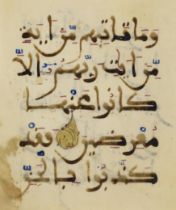 وما تاتيهم من اية
من ايت ربهم الا
كانوا عنها
معرضين فقد
كذبوا بالحق